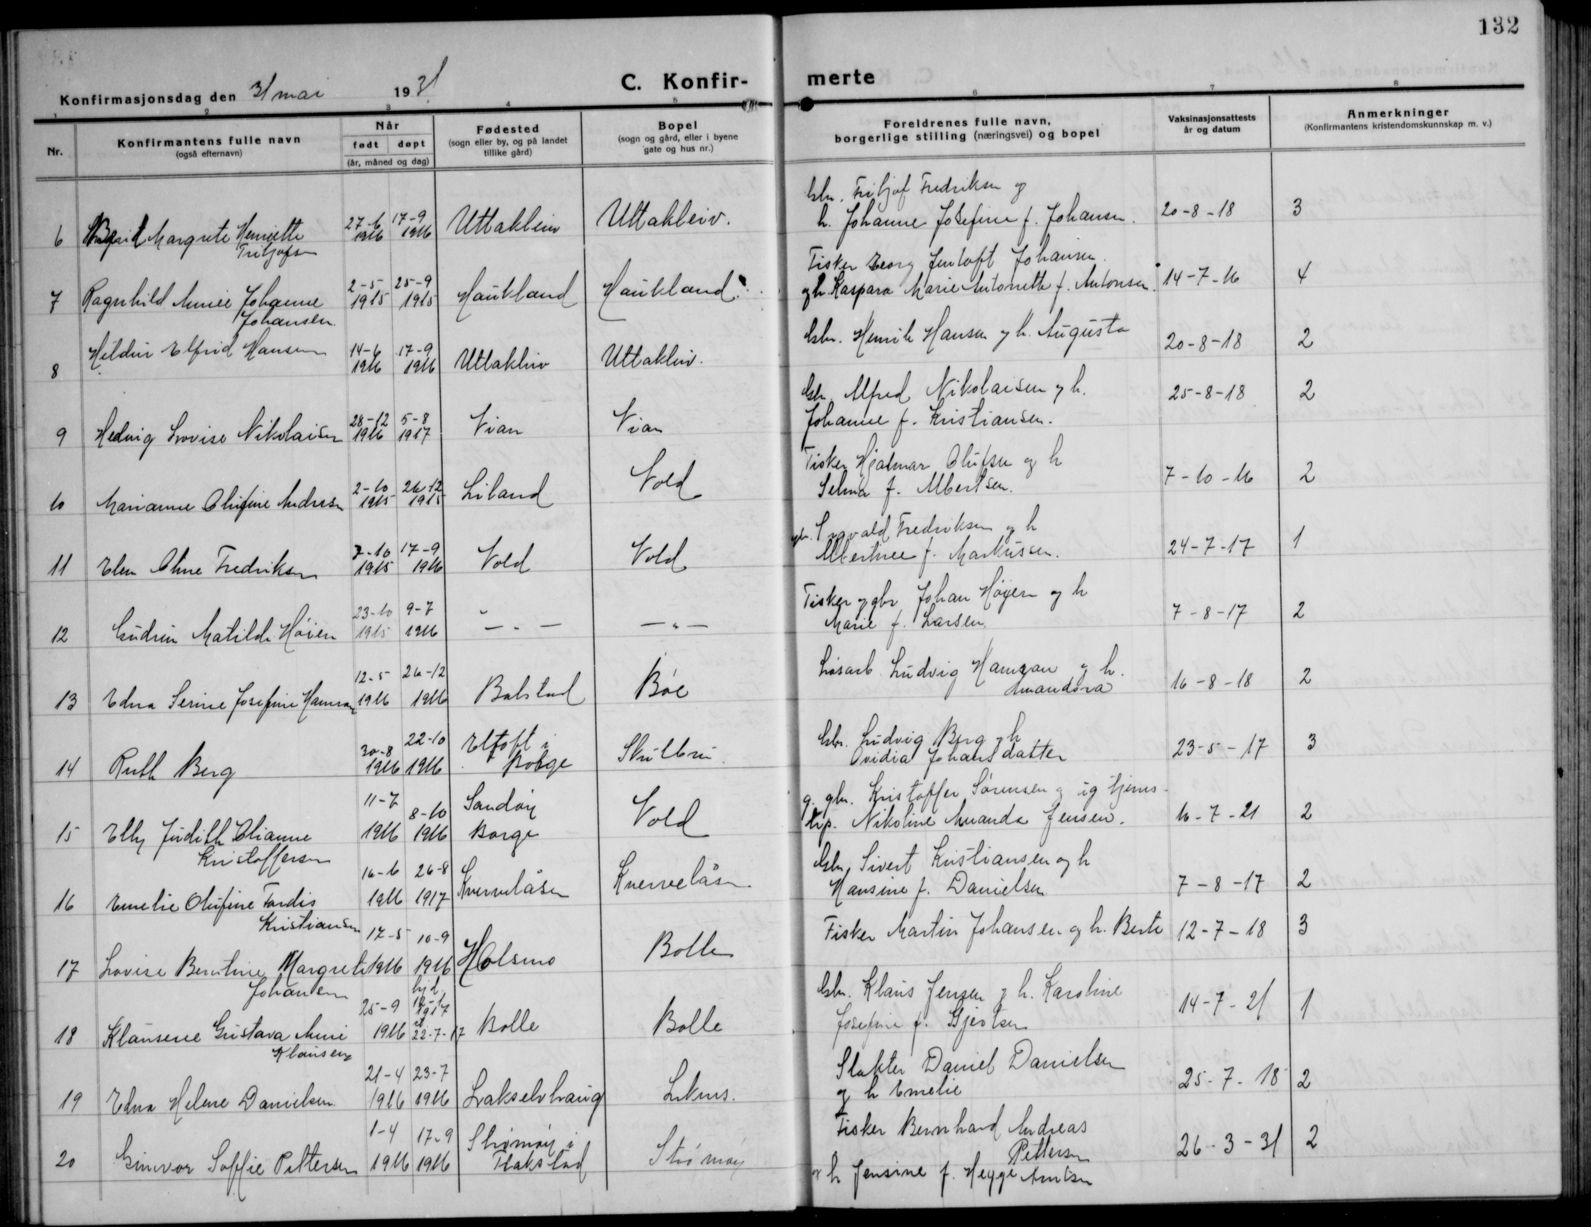 132
C. Konfir- merte
Konfirmasjonsdag den 31 mai 1931
1 2 3 4 5 6 7 8
Nr.
Konfirmantens fulle navn
(også efternavn)
Når
født døpt
(år, måned og dag)
Fødested
(sogn eller by, og på landet
tillike gård)
Bopel
(sogn og gård, eller i byene
gate og hus nr.)
Foreldrenes fulle navn,
borgerlige stilling (næringsvei) og bopel
Vaksinasjonsattests
år og datum
Anmerkninger
(Konfirmantens kristendomskunnskap m. v.)
6 Margrete Henriette 27-6 1916 17-9 1916 Uttakleiv Uttakleiv. Gbr. Fritjof Fredriksen og
Fritjofsen h. Johanne Josefine f. Johansen. 20-8-18 3
7 Ragnhild Annie Johanne 2-5 1915 25-9 1915 Haukland Haukland. Fisker Georg Jentoft Johansen
Johansen og h. Kaspara Marie Antonette f. Antonsen. 14-7-16 4
8 Hildur Elfrid Hansen 14-6 1916 17-9 1916 Uttakleiv Uttakleiv. Gbr. Henrik Hansen og h. Augusta 20-8-18 2
9 Hedvig Lovise Nikolaisen 28-12 1916 5-8 1917 Vian Vian Gbr. Alfred Nikolaisen og h.
Johanne f. Kristiansen. 25-8-18 2
10 Marianne Olufine Andresen 2-10 1915 26-12 1915 Liland Vold Fisker Hjalmar Olufsen og h
Selma f. Albertsen. 7-10-16 2
11 Elen Oline Fredriksen 7-10 1915 17-9 1916 Vold Vold gbr. Fredriksen og h
f. Markussen. 24-7-17 1
12 Gudrun Matilde Høien 23-10 1915 9-7 1916 — " — — " — Fisker og gbr. Johan Høyen og h
Marie f. Larsen. 7-8-17 2
13 Edna Serine Josefine Hamran 12-5 1916 26-12 1916 Balstad Bøe Løsarb. Ludvig Hamran og h.
Amandora 16-8-18 2
14 Ruth Berg 30-8 1916 22-10 1916 Eltoft i Borge Skullbru Gbr. Ludvig Berg og h
Ovidia Johansdatter 23-5-17 3
15 Elly Judith Olianne 11-7 1916 8-10 1916 Sandøy Borge Vold g. gbr. Kristoffer Sørensen og ug tjenes-
Kristoffersen Nikoline Amanda Jensen. 16-7-21 2
16 Emelie Olufine Tordis 16-6 1916 26-8 1917 Kvervelåsen Kvervelåsen Gbr. Sivert Kristiansen og h
Kristiansen Hansine f. Danielsen 7-8-17 2
17 Lovise Berntine Margrete 17-5 1916 10-9 1916 Holsmo Bolle Fisker Martin Johansen og h. Berte 12-7-18 3
Johansen
18 Klausene Gustava Anni 25-9 1916 hjd. 1917 22-7-17 Bolle Bolle Gbr. Klaus Jensen og h. Karoline
Klausen Josefine f. Gjertsen 14-7-21 1
19 Edna Helene Danielsen 21-4 1916 23-7 1916 Lakselvhaug Leknes. Slakter Daniel Danielsen
og h Emelie 25-7-18 2
20 Gunvor Soffie Pettersen 1-4 1916 17-9 1916 Strømøy i Flakstad Strømøy Fisker Bernhard Andreas
Pettersen
og h Jensine f. Hegge Arntsen 26-3-31 2